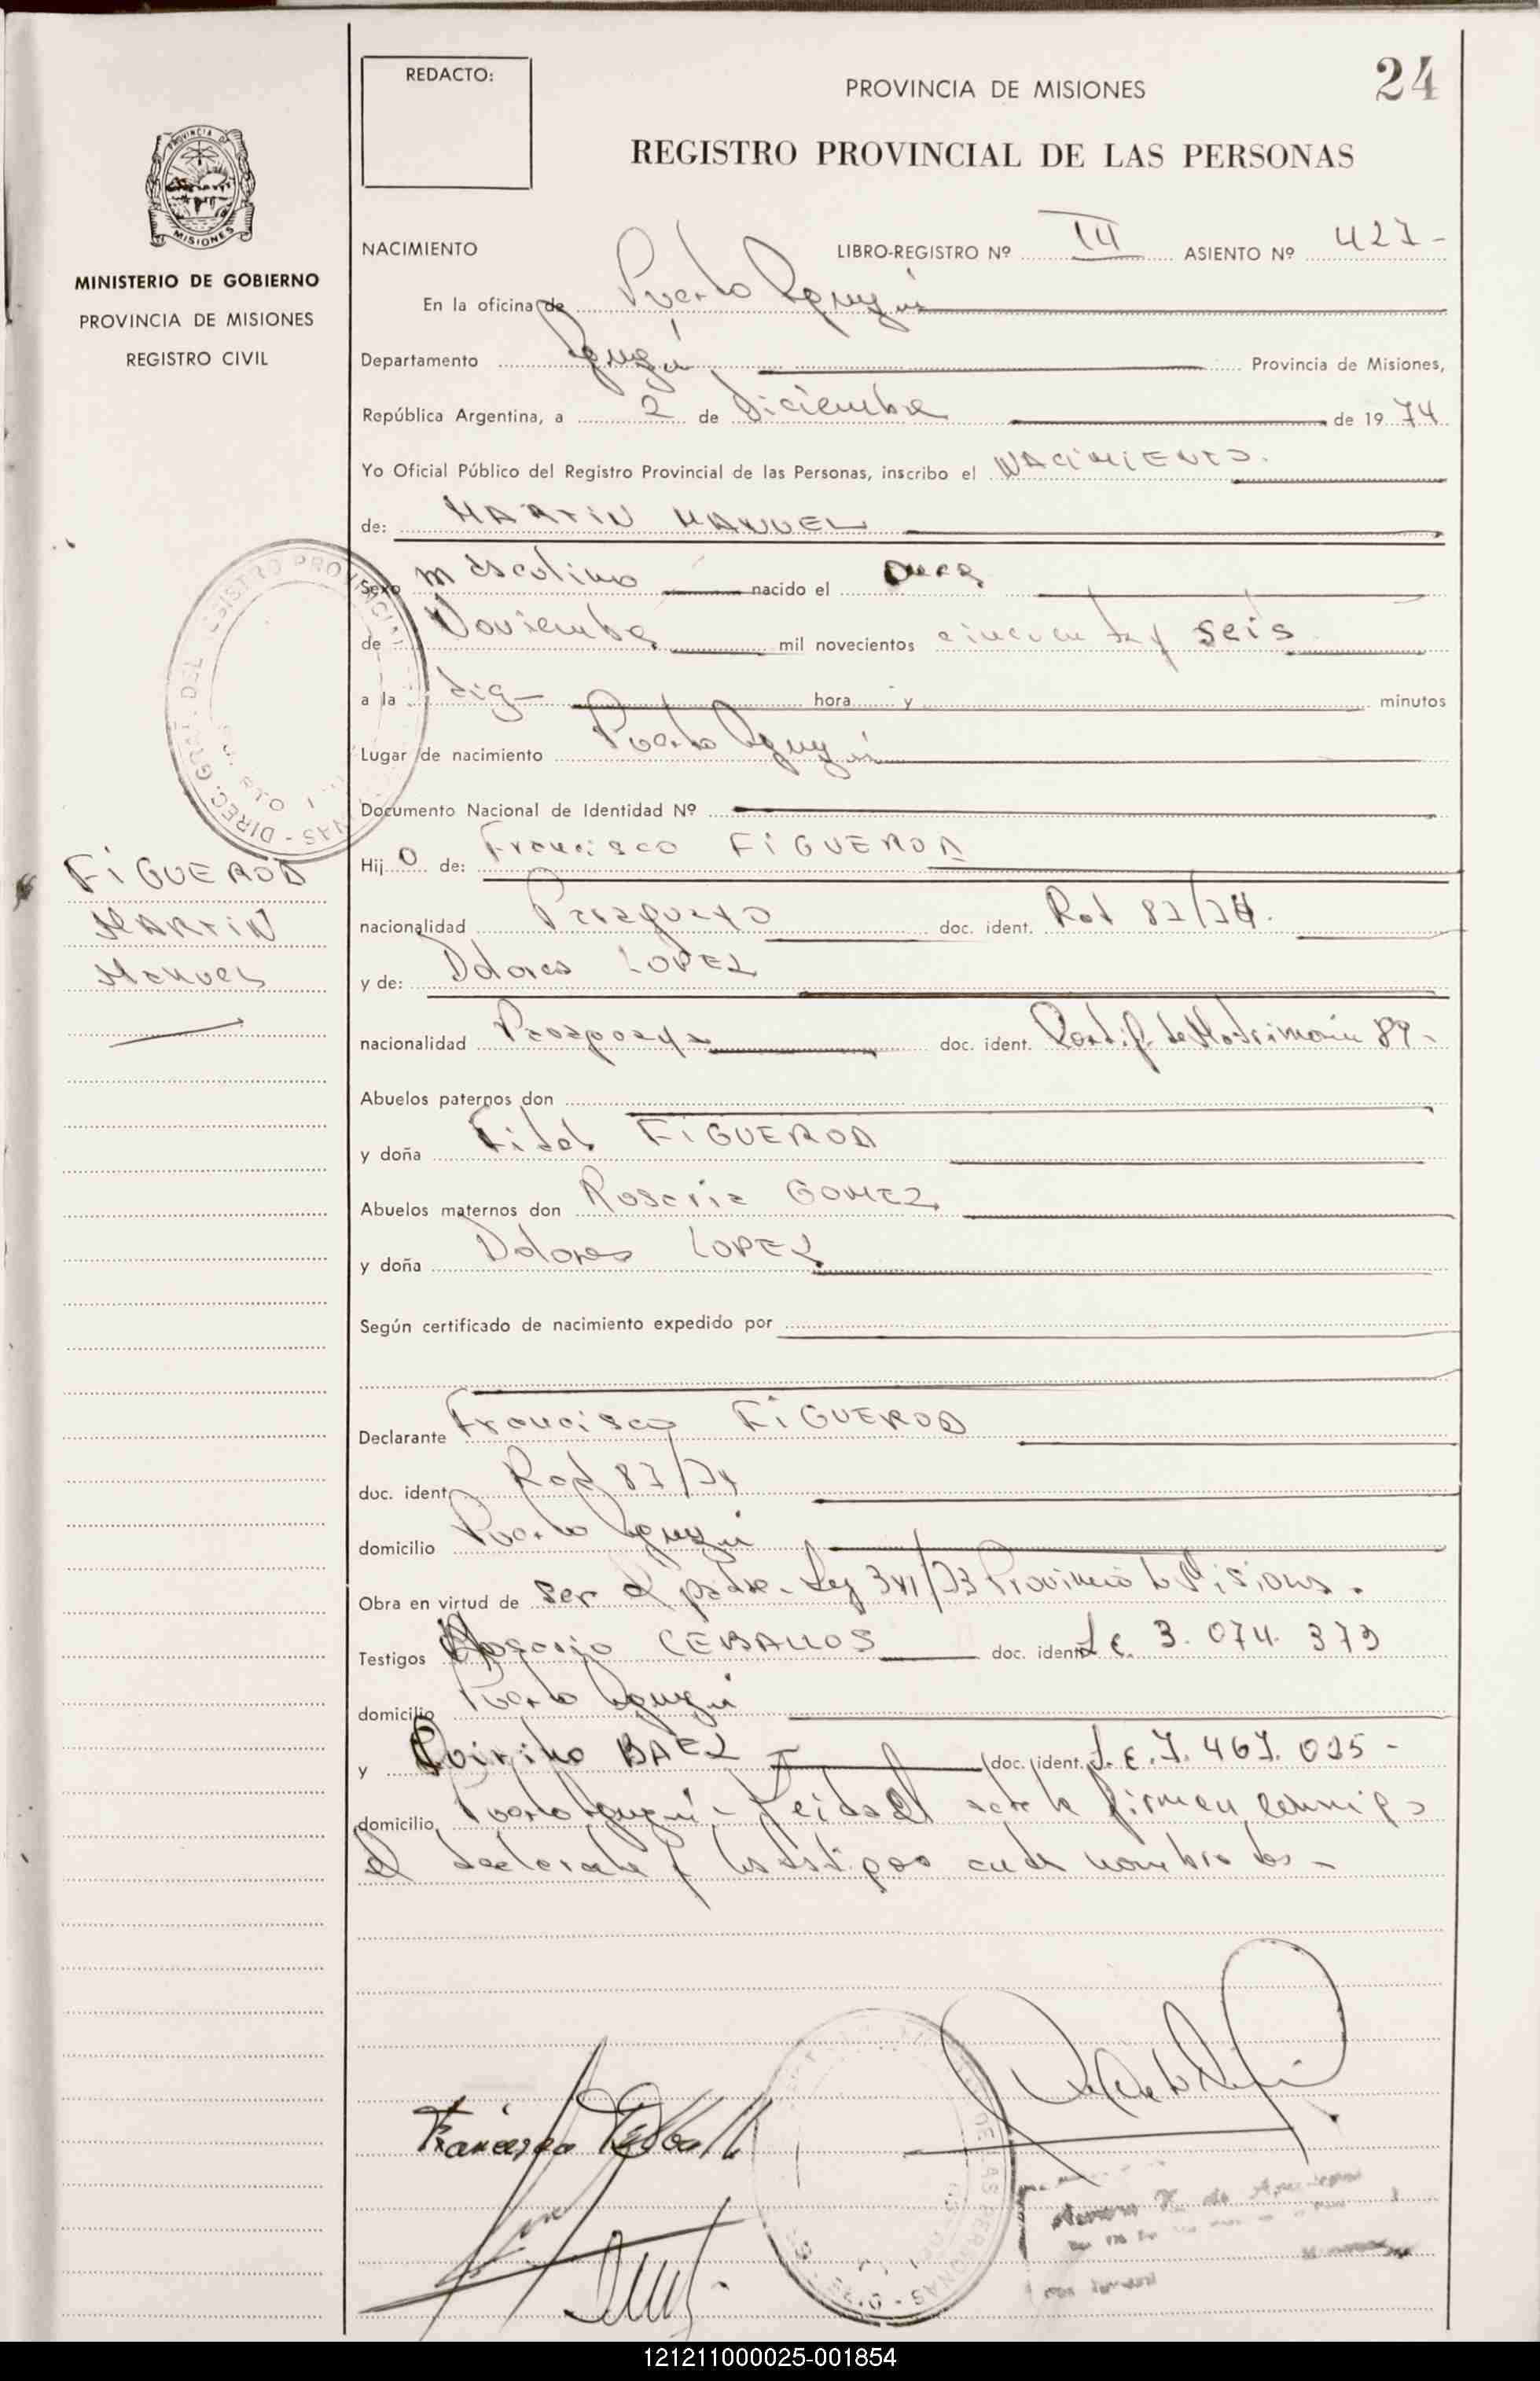 REDACTO:
PROVINCIA DE MISIONES
24
REGISTRO PROVINCIAL DE LAS PERSONAS
PROVINCIA D
MISIONES
MINISTERIO DE GOBIERNO
PROVINCIA DE MISIONES
REGISTRO CIVIL
NACIMIENTO LIBRO-REGISTRO Nº III ASIENTO Nº 427-
En la oficina de Puerto Iguazú
Departamento Iguazú Provincia de Misiones,
República Argentina, a 2 de Diciembre de 1974
Yo Oficial Público del Registro Provincial de las Personas, inscribo el NACIMIENTO.
de: MARTIN MANUEL
Sexo masculino nacido el once
de Noviembre mil novecientos cincuenta y seis
a la hora y minutos
Lugar de nacimiento Puerto Iguazú
Documento Nacional de Identidad Nº
Hijo de: Francisco FIGUEROA
nacionalidad Paraguayo doc. ident. Rad 87/74.
y de: Dolores LOPEZ
nacionalidad Paraguaya doc. ident. Certif. de Matrimonio 89-
FIGUEROA
MARTIN
Manuel
Abuelos paternos don
y doña Fidel FIGUEROA
Abuelos maternos don Rosaria GOMEZ
y doña Dolores LOPEZ
Según certificado de nacimiento expedido por
Declarante Francisco FIGUEROA
doc. ident. Rad 87/74
domicilio Puerto Iguazú
Obra en virtud de ser el padre- Ley /73 Provincia de Misiones.
Testigos Rosario CEBALLOS doc. ident. L.E. 3.074.373
domicilio Puerto Iguazú
y Quirino BAEZ doc. ident. L.E. 7.467.025-
domicilio Puerto Iguazú- Leida el acta la firman conmigo
el declarante y los testigos nombrados-
121211000025-001854